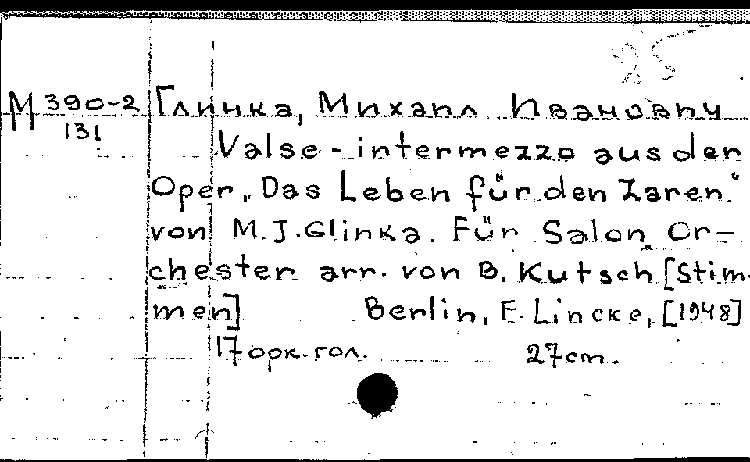 М 390-2 Глинка, Михаил Иванович
131
Valse-intermezzo aus der
Oper „Das Leben für den Zaren"
von M.J.Glinka. Für Salon Or-
chester arr. von B. Kutsch [Stim-
men] Berlin, E. Lincke, [1948]
17 орк. гол. 27cm.